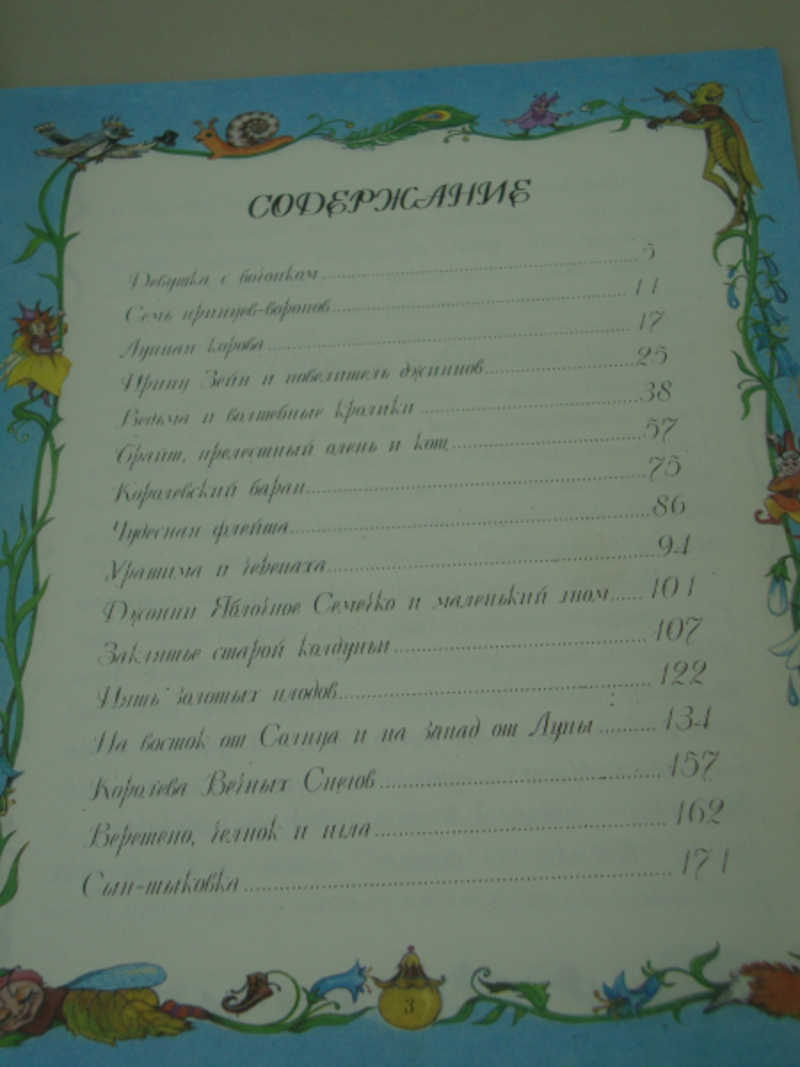 СОДЕРЖАНИЕ
Девушка с бочонком 5
Семь принцев-воронов 11
Лунная корова 17
Принц Зейн и повелитель джиннов 25
Ведьма и волшебные кролики 38
Брайт, прелестный олень и кот 57
Королевский баран 75
Чудесная флейта 86
Урашима и черепаха 94
Джонни Яблочное Семечко и маленький гном 101
Заклятье старой колдуньи 107
Пять золотых плодов 122
На восток от Солнца и на запад от Луны 134
Королева Вечных Снегов 157
Веретено, челнок и игла 162
Сын-тыковка 171
3